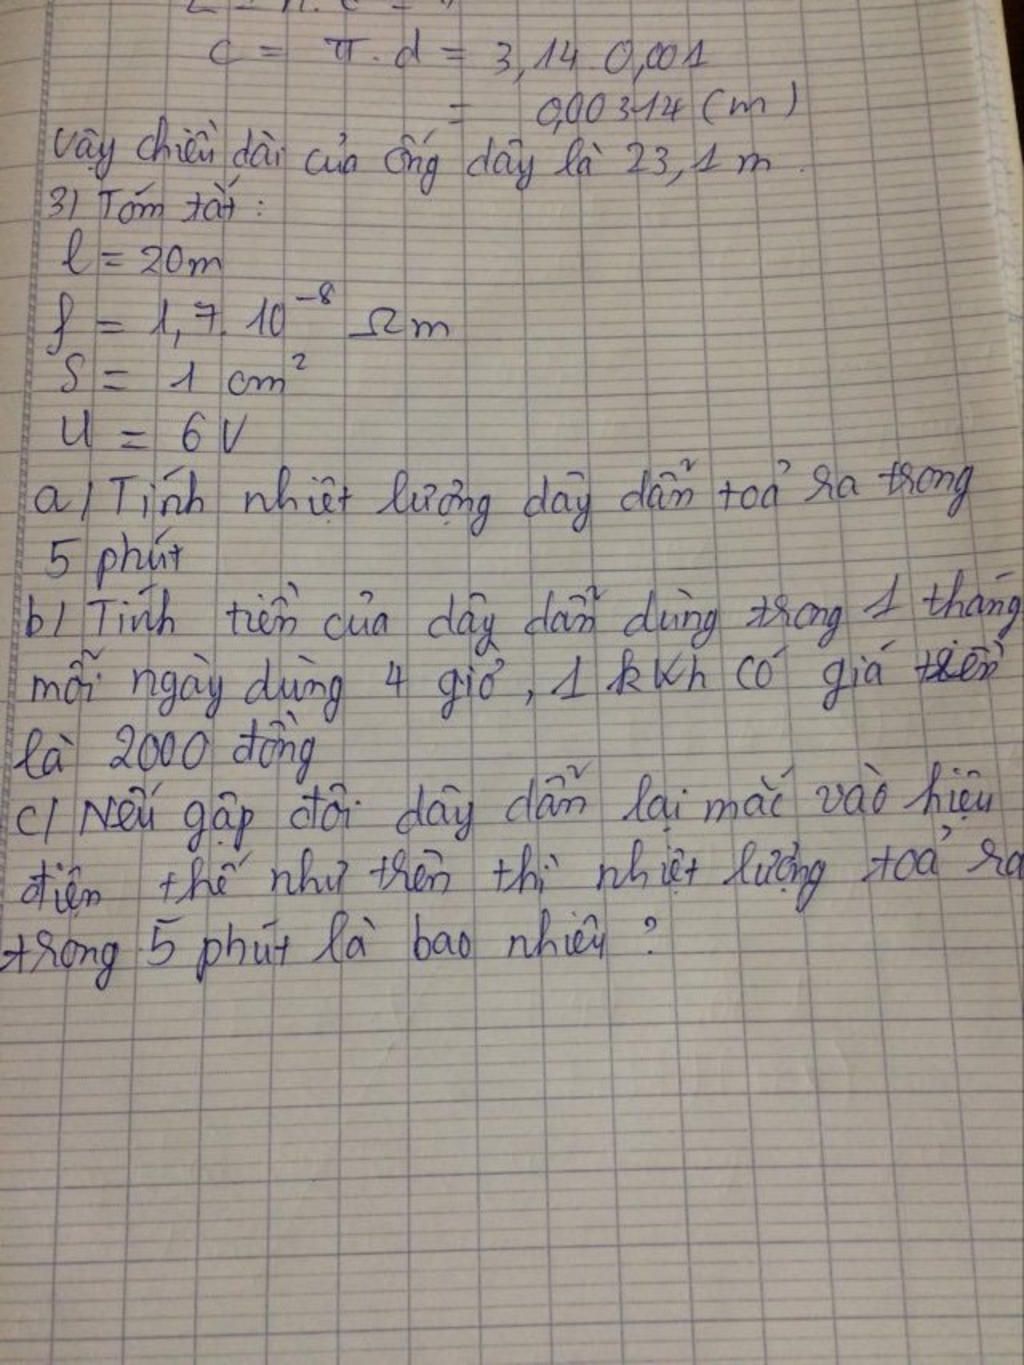 c = π . d = 3,14 . 0,001
= 0,00314 (m)
Vậy chiều dài của ống dây là 23,1 m.
3) Tóm tắt :
l = 20m
ρ = 1,7. 10⁻⁸ Ωm
S = 1 cm²
U = 6 V
a) Tính nhiệt lượng dây dẫn toả ra trong
5 phút
b) Tính tiền của dây dẫn dùng trong 1 tháng
mỗi ngày dùng 4 giờ, 1 kWh có giá tiền
là 2000 đồng
c) Nếu gập đôi dây dẫn lại mắc vào hiệu
điện thế như trên thì nhiệt lượng toả ra
trong 5 phút là bao nhiêu ?